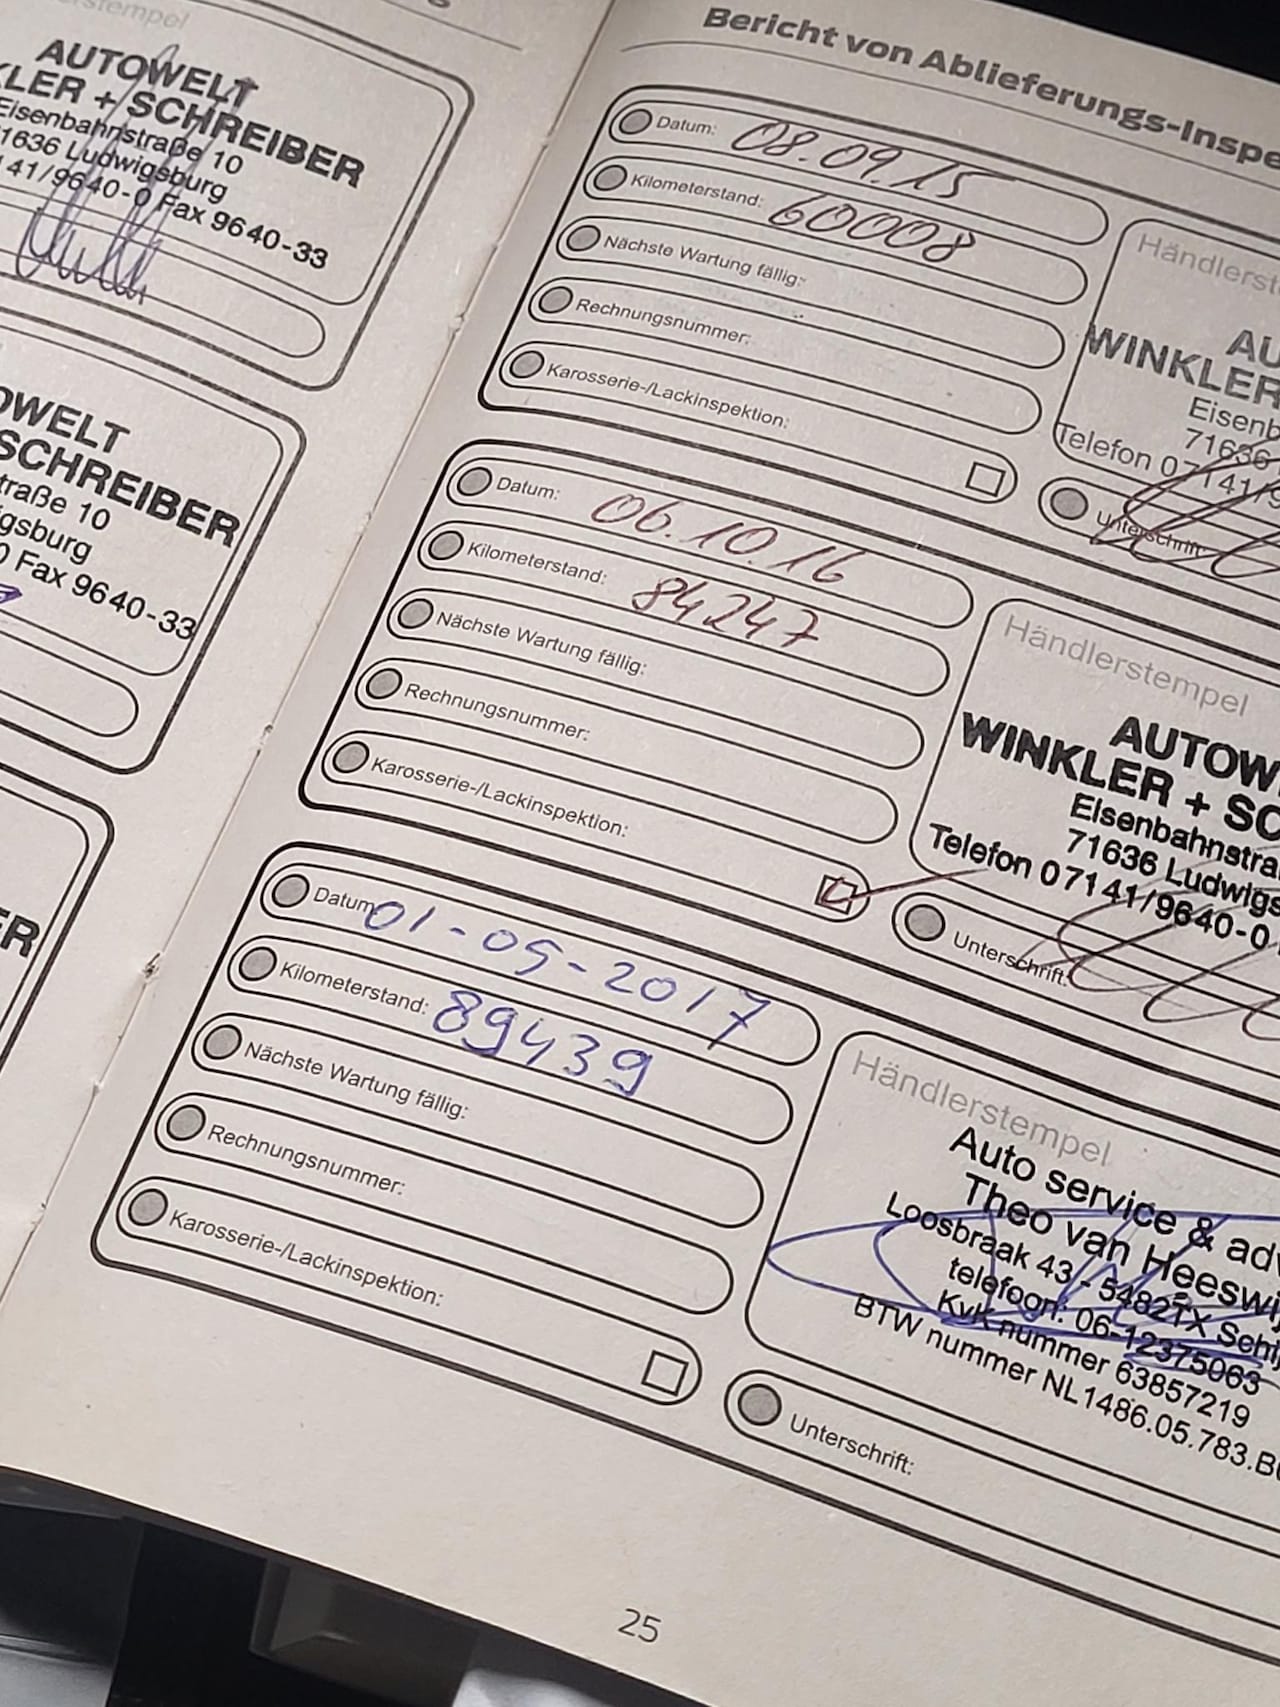 AUTOWELT
KLER + SCHREIBER
Eisenbahnstraße 10
71636 Ludwigsburg
141/9640-0 Fax 9640-33
OWELT
SCHREIBER
traße 10
igsburg
0 Fax 9640-33
ER
Bericht von Ablieferungs-Inspe
Datum: 08.09.15
Kilometerstand: 60008
Nächste Wartung fällig:
Rechnungsnummer:
Karosserie-/Lackinspektion:
Händlerst
AU
WINKLER
Eisenb
71636
Telefon 07141/9
Unterschrift:
Datum: 06.10.16
Kilometerstand: 84247
Nächste Wartung fällig:
Rechnungsnummer:
Karosserie-/Lackinspektion:
Händlerstempel
AUTOW
WINKLER + SC
Eisenbahnstra
71636 Ludwigs
Telefon 07141/9640-0
Unterschrift:
Datum 01-05-2017
Kilometerstand: 89439
Nächste Wartung fällig:
Rechnungsnummer:
Karosserie-/Lackinspektion:
Händlerstempel
Auto service & adv
Theo van Heeswij
Loosbraak 43 - 5482TX Schij
telefoon: 06-12375063
KvK nummer 63857219
BTW nummer NL1486.05.783.B
Unterschrift:
25